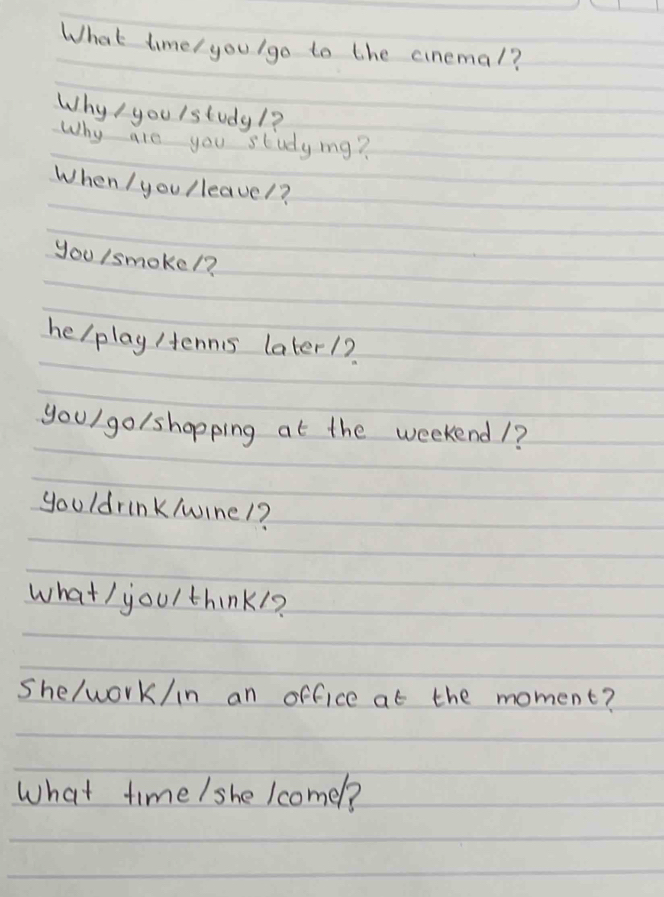 What time/you/go to the cinema/?
Why/you/study/?
Why are you studying?
When/you/leave/?
you/smoke/?
he/play/tennis later/?
you/go/shopping at the weekend/?
you/drink/wine/?
what/you/think/?
She/work/in an office at the moment?
What time/she/come/?